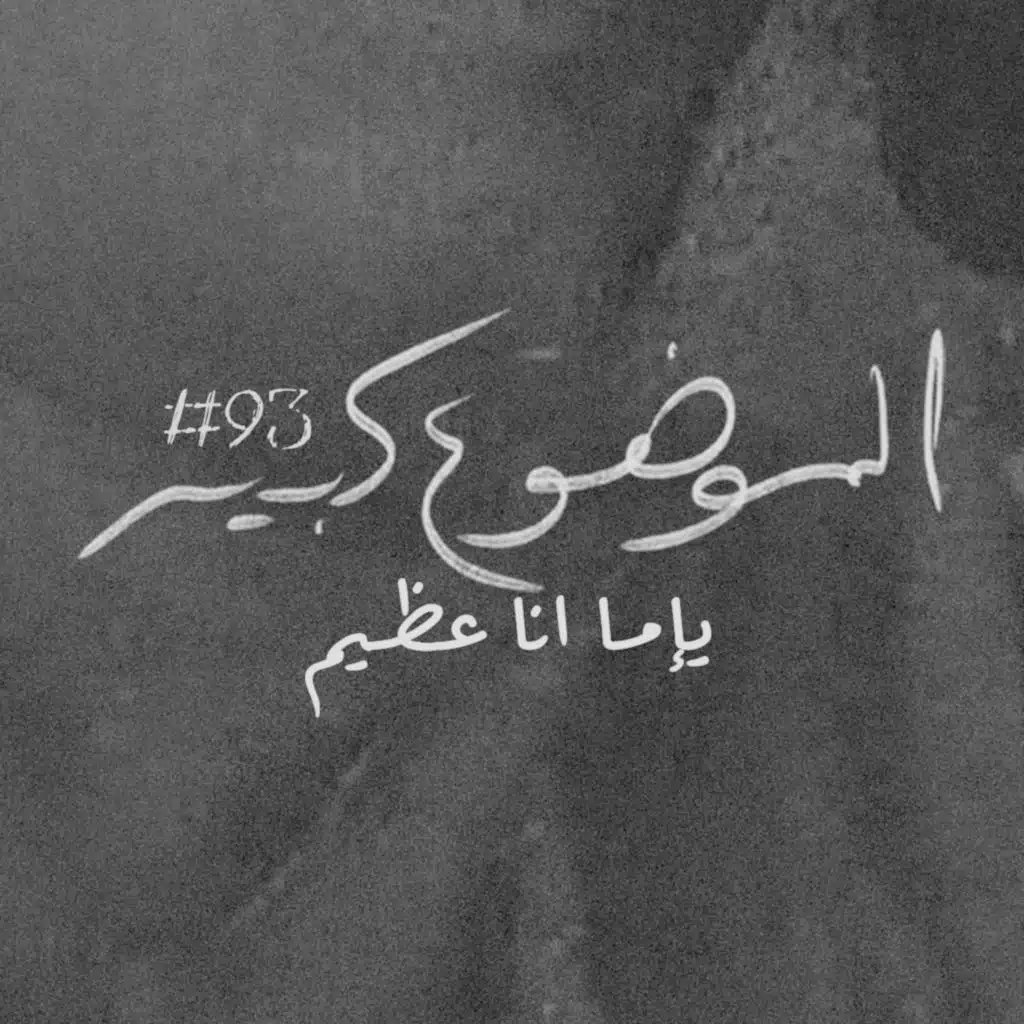 الموضوع كبير #93
يإما انا عظيم